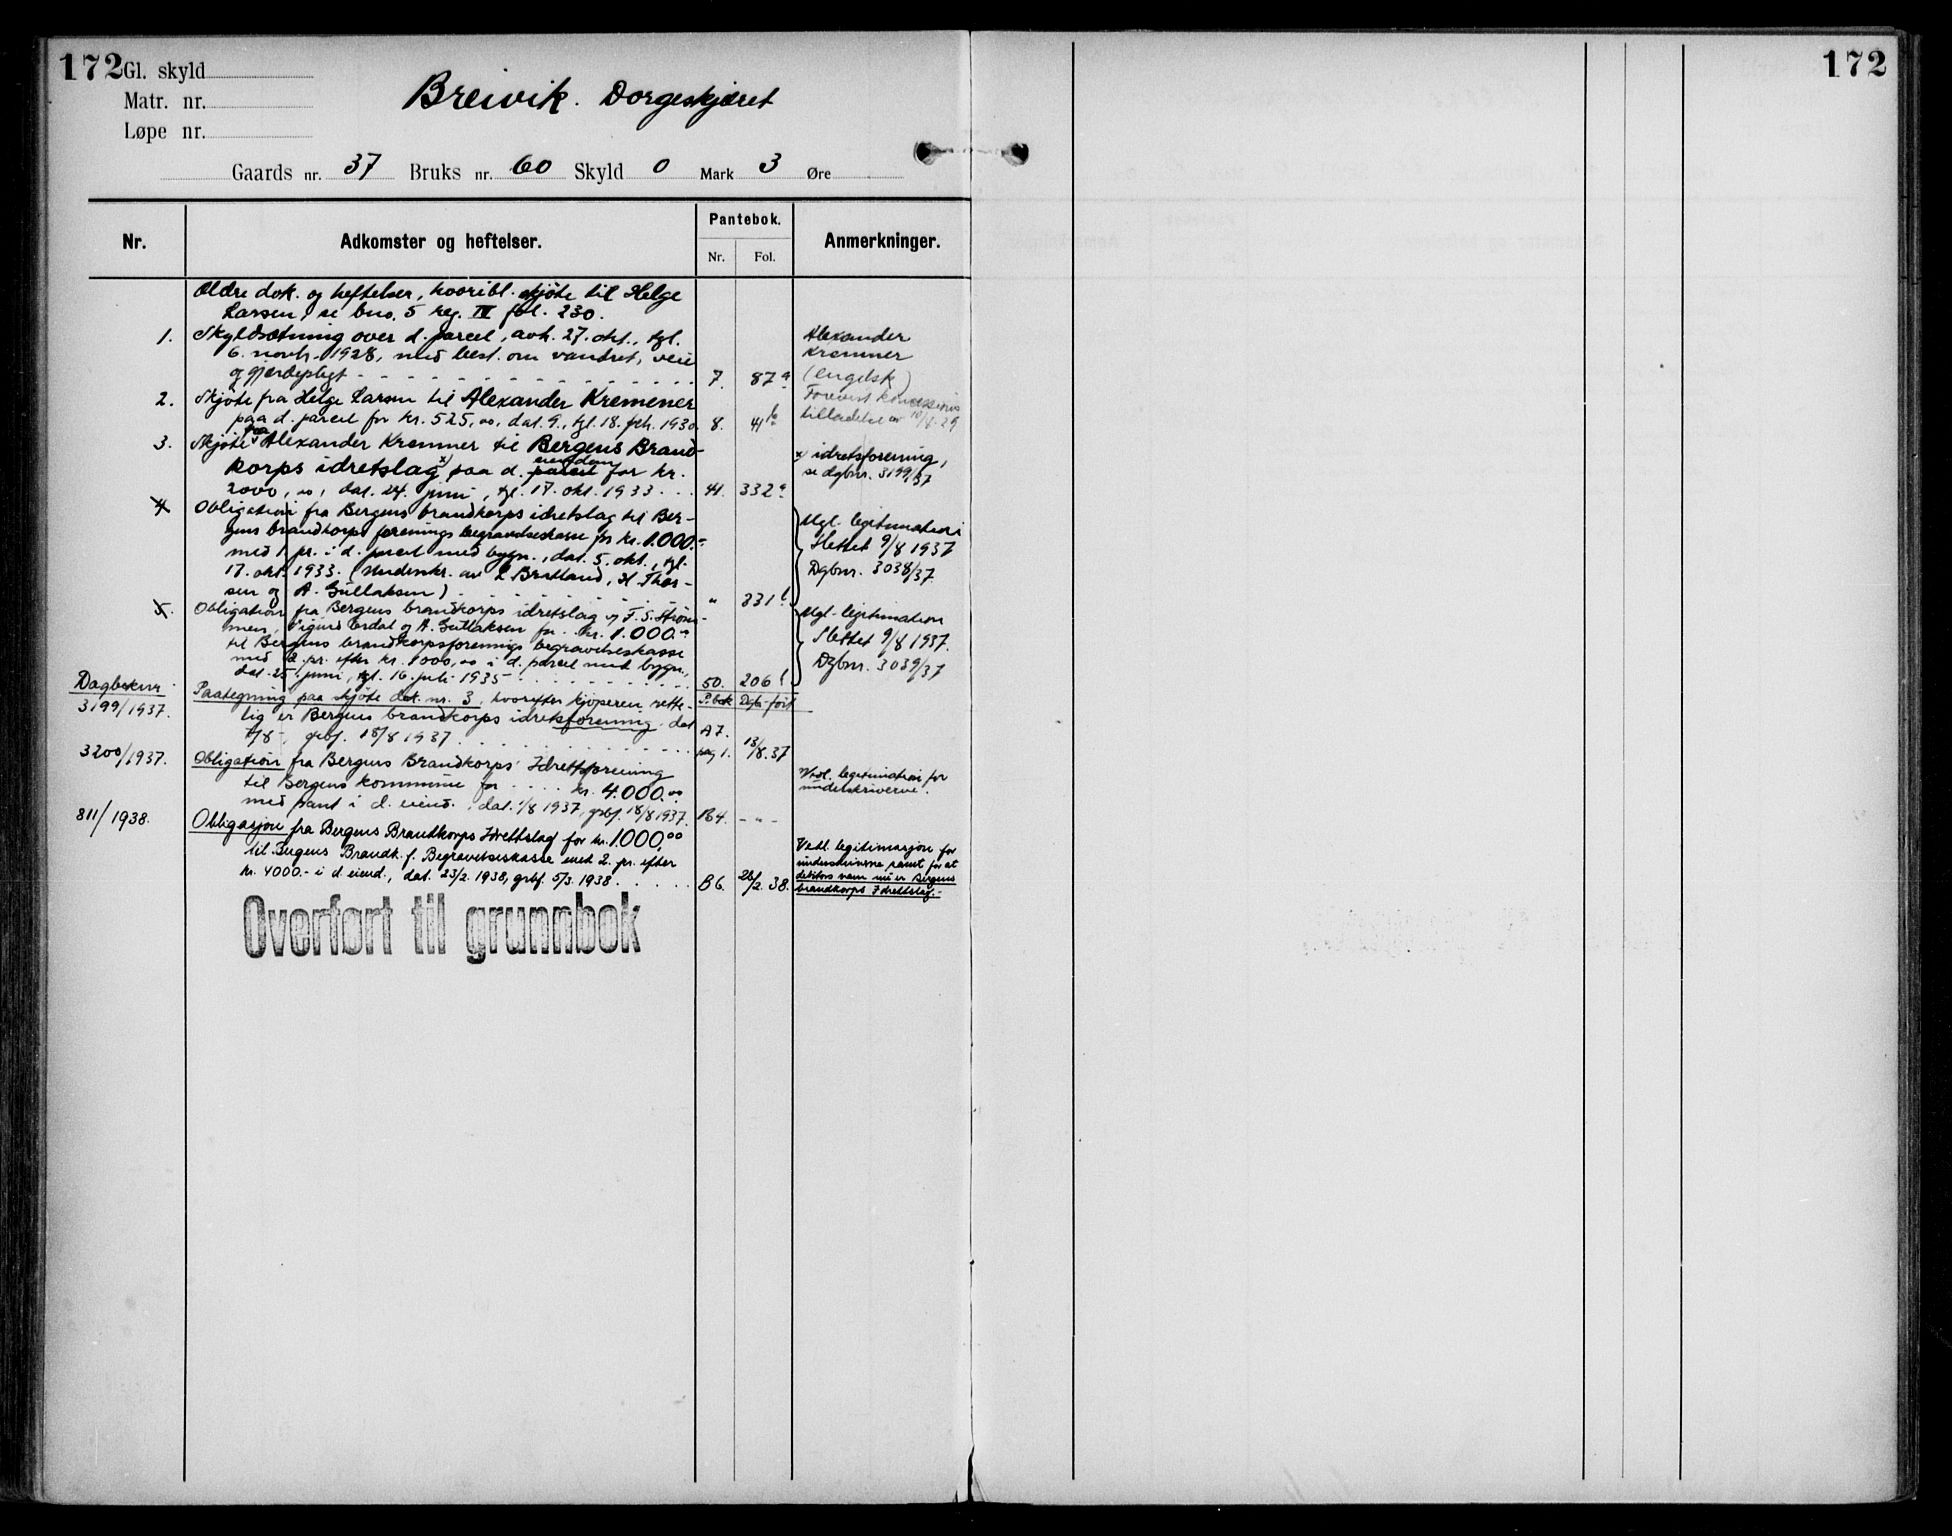 172
Gl. skyld
Matr. nr.
Løpe nr.
Breivik. Dorgeskjæret
Gaards nr. 37 Bruks nr. 60 Skyld 0 Mark 3 Øre
172
Nr.
Adkomster og heftelser.
Pantebok.
Nr. Fol.
Anmerkninger.
Ældre dok. og heftelser, hvoribl. skjøte til Helge
Larsen, se bno. 5 reg. IV fol. 230.
1. Skyldsætning over d. parcel, avh. 27. okt., tgl.
6. novbr. 1928, med best. om vandret, veie
og gjerdepligt 7. 87 a
Alexander
Kremner
(engelsk)
Forevist koncessions
tilladelse av 10/8-29
2. Skjøte fra Helge Larsen til Alexander Kremener
paa d. parcel for kr. 525,00, dat. 9., tgl. 18. feb. 1930. 8. 41 b
3. Skjøte fra Alexander Kremner til Bergens Brand-
korps idretslag x) paa d. parcel eiendom for kr.
2000,00, dat. 24. juni, tgl. 17. okt. 1933 41. 332 a
x) idretsforening,
se dgbnr. 3199/37
4. Obligation fra Bergens brandkorps idretslag til Ber-
gens brandkorps forenings begravelseskasse for kr. 1.000.-
med 1. pr. i d. parcel med bygn., dat. 5. okt., tgl.
17. okt. 1933. (Underskr. av L Bratland, H Thor-
sen og A. Gullaksen) " 331 b
Mgl. legitimation
Slettet 9/8 1937
Dgbnr. 3038/37
5. Obligation fra Bergens brandkorps idretslag og F. S. Strøm-
men, Sigurd Erdal og A. Gullaksen for kr. 1.000.-
til Bergens brandkorpsforenings begravelseskasse
med 2. pr. efter kr. 1000,00 i d. parcel med bygn.,
dat. 25. juni, tgl. 16. juli 1935 50. 206 b
Mgl. legitimation
Slettet 9/8 1937.
Dgbnr. 3039/37
Dagboknr. P.bok Dgb.-ført
3199/1937. Paategning paa skjøte dok. nr. 3, hvorefter kjøperen rette-
lig er Bergens brandkorps idretsforening. dat
4/8-, grbf. 18/8 1937 A7. pag 1. 18/8.37
3200/1937. Obligation fra Bergens Brandkorps' Idrettsforening
til Bergens kommune for kr. 4.000.00
med pant i d. eiend., dat. 4/8 1937, grbf. 18/8 1937. B4. - " -
Vedl. legitimation for
underskriverne.
811/1938. Obligasjon fra Bergens Brandkorps Idrettslag for kr. 1000,00
til Bergens Brandk. f. Begravelseskasse med 2. pr. efter
kr. 4000.- i d. eiend., dat. 23/2. 1938, grbf. 5/3. 1938. B6. 28/2. 38.
Vedl. legitimasjon for
underskriverne samt for at
debitors navn nu er Bergens
brandkorps Idrettslag.-
Overført til grunnbok